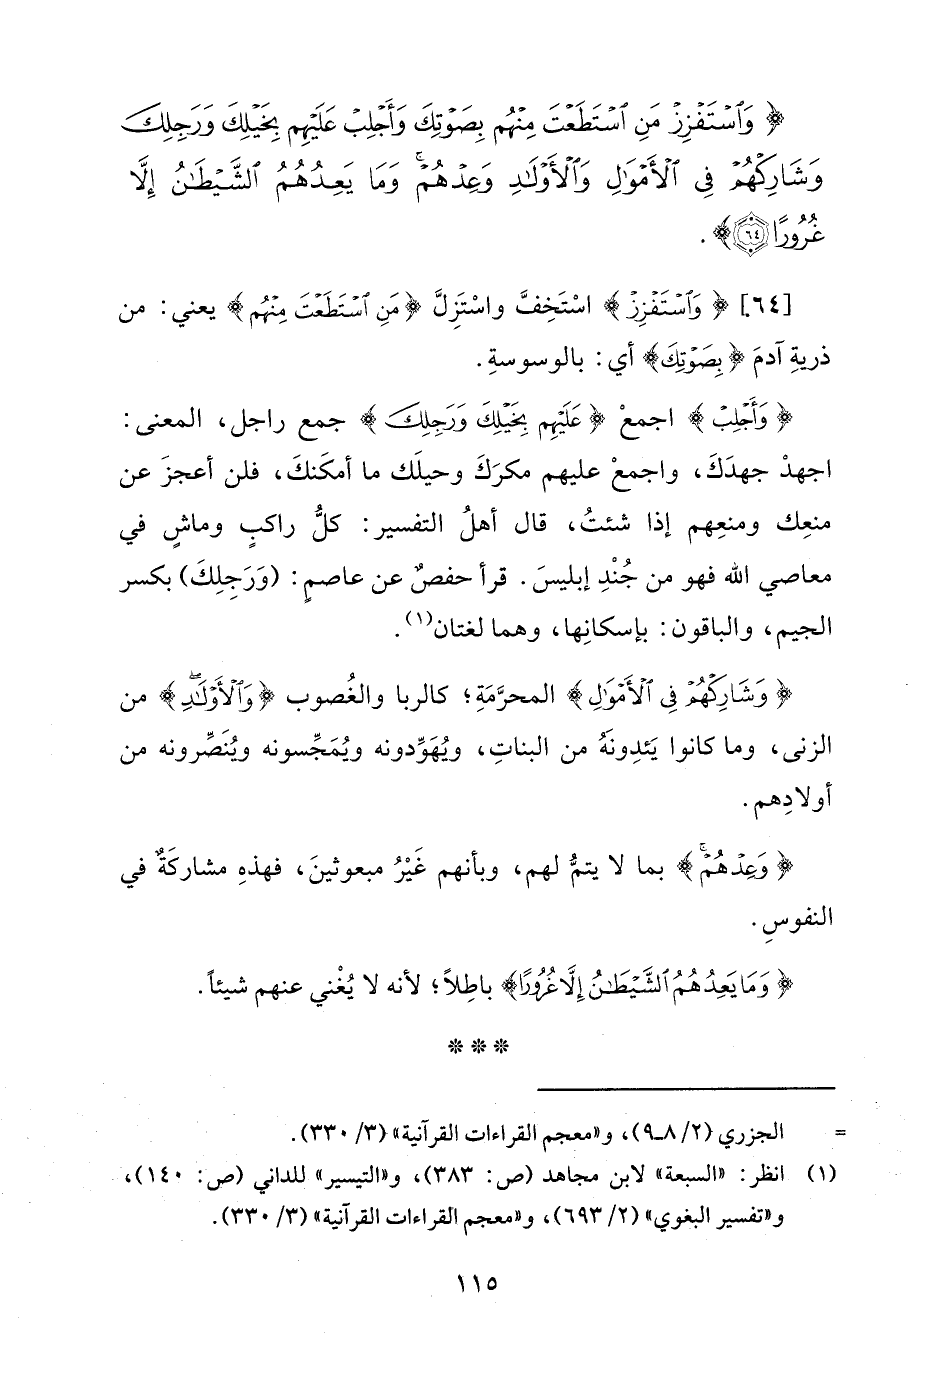 ﴿ وَٱسْتَفْزِزْ مَنِ ٱسْتَطَعْتَ مِنْهُم بِصَوْتِكَ وَأَجْلِبْ عَلَيْهِم بِخَيْلِكَ وَرَجِلِكَ
وَشَارِكْهُمْ فِي ٱلْأَمْوَٰلِ وَٱلْأَوْلَٰدِ وَعِدْهُمْۚ وَمَا يَعِدُهُمُ ٱلشَّيْطَٰنُ إِلَّا
غُرُورًا ٦٤﴾ .
[٦٤] ﴿ وَٱسْتَفْزِزْ ﴾ اسْتَخِفَّ واسْتَزِلَّ ﴿مَنِ ٱسْتَطَعْتَ مِنْهُم ﴾ يعني: من
ذريةِ آدمَ ﴿ بِصَوْتِكَ﴾ أي: بالوسوسةِ.
﴿ وَأَجْلِبْ ﴾ اجمعْ ﴿ عَلَيْهِم بِخَيْلِكَ وَرَجِلِكَ ﴾ جمع راجل، المعنى:
اجهدْ جهدَكَ، واجمعْ عليهم مكرَكَ وحيلَك ما أمكَنكَ، فلن أعجزَ عن
منعِك ومنعِهم إذا شئتُ، قال أهلُ التفسير: كلُّ راكبٍ وماشٍ في
معاصي الله فهو من جُنْدِ إبليسَ. قرأ حفصٌ عن عاصمٍ: (وَرَجِلِكَ) بكسر
الجيم، والباقون: بإسكانِها، وهما لغتان(١).
﴿ وَشَارِكْهُمْ فِي ٱلْأَمْوَٰلِ ﴾ المحرَّمَةِ؛ كالربا والغُصوب ﴿وَٱلْأَوْلَٰدِۖ﴾ من
الزنى، وما كانوا يَئِدونَهُ من البناتِ، ويُهَوِّدونه ويُمَجِّسونه ويُنَصِّرونه من
أولادِهم.
﴿ وَعِدْهُمْۚ ﴾ بما لا يتمُّ لهم، وبأنهم غَيْرُ مبعوثينَ، فهذهِ مشاركَةٌ في
النفوسِ.
﴿ وَمَا يَعِدُهُمُ ٱلشَّيْطَٰنُ إِلَّا غُرُورًا﴾ باطِلاً؛ لأنه لا يُغْني عنهم شيئاً.
* * *
= الجزري (٢/ ٨ـ٩)، و«معجم القراءات القرآنية» (٣/ ٣٣٠).
(١) انظر: «السبعة» لابن مجاهد (ص: ٣٨٣)، و«التيسير» للداني (ص: ١٤٠)،
و«تفسير البغوي» (٢/ ٦٩٣)، و«معجم القراءات القرآنية» (٣/ ٣٣٠).
١١٥